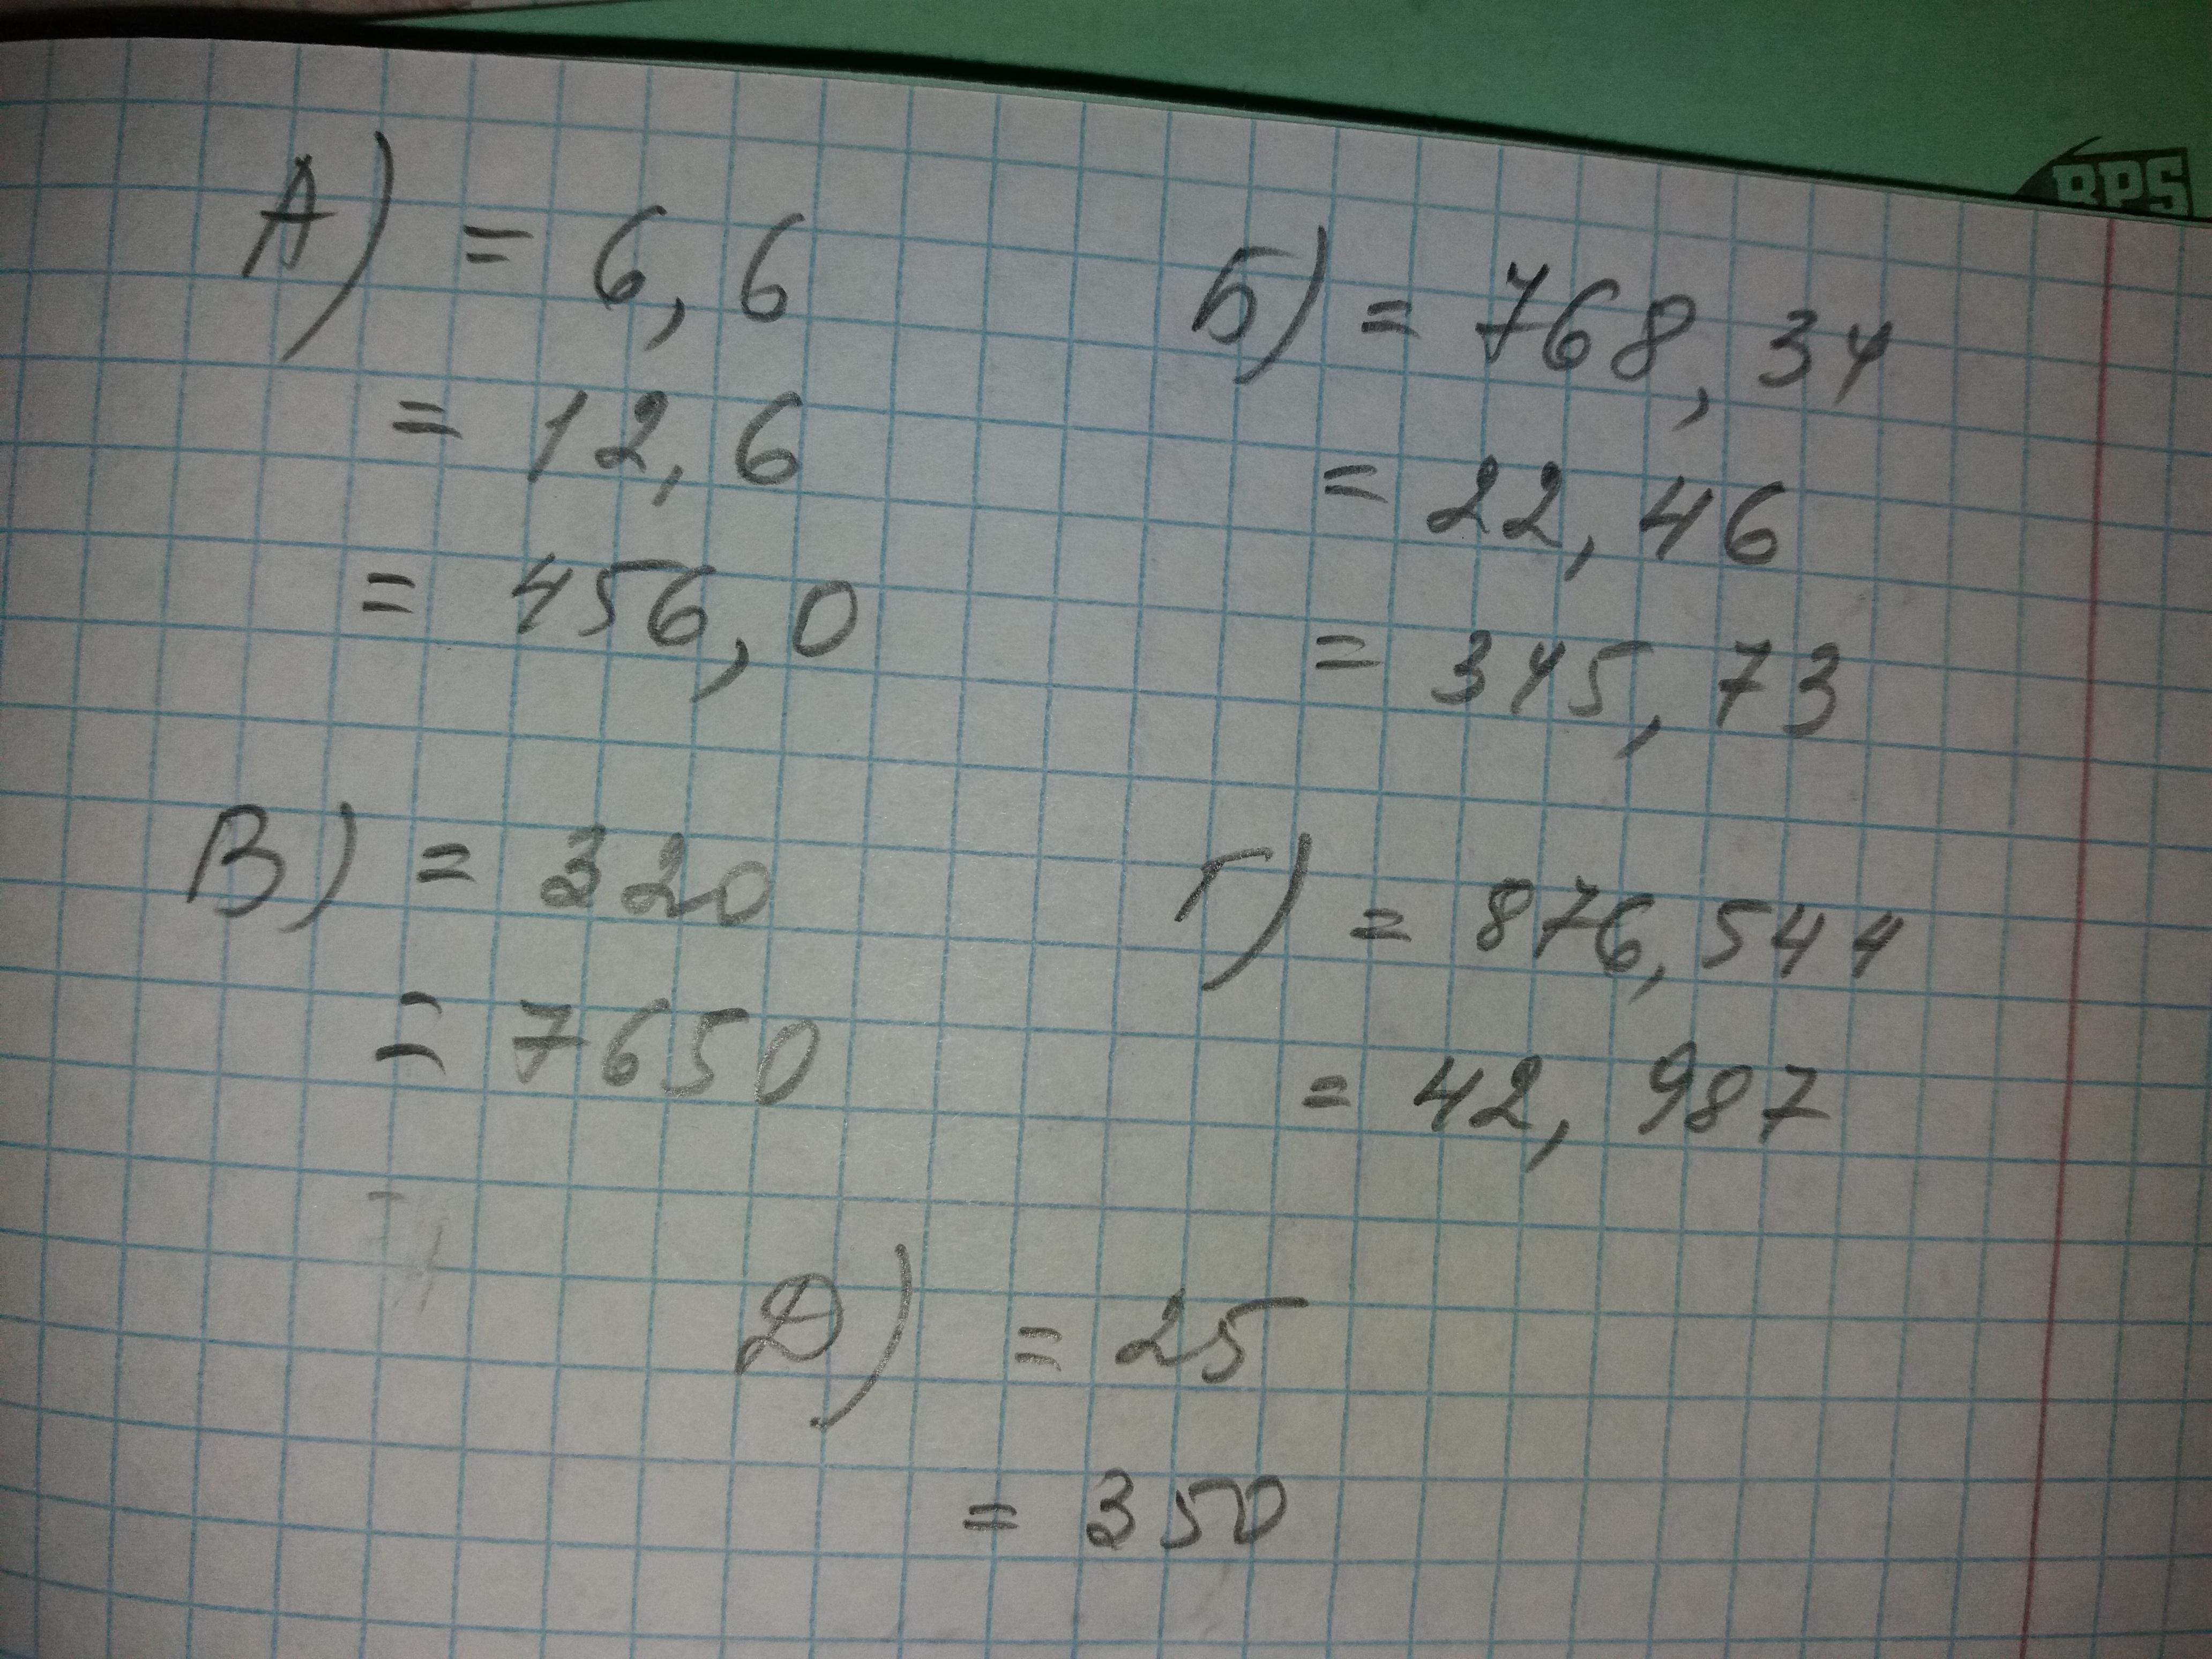 А) = 6,6
= 12,6
= 456,0
Б) = 768,34
= 22,46
= 345,73
В) = 320
= 7650
Г) = 876,544
= 42,987
Д) = 25
= 350
BPS